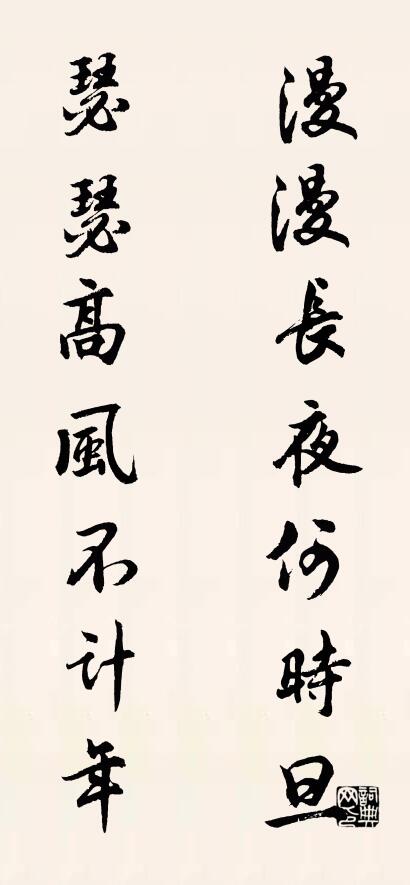 漫漫長夜何時旦
瑟瑟高風不計年